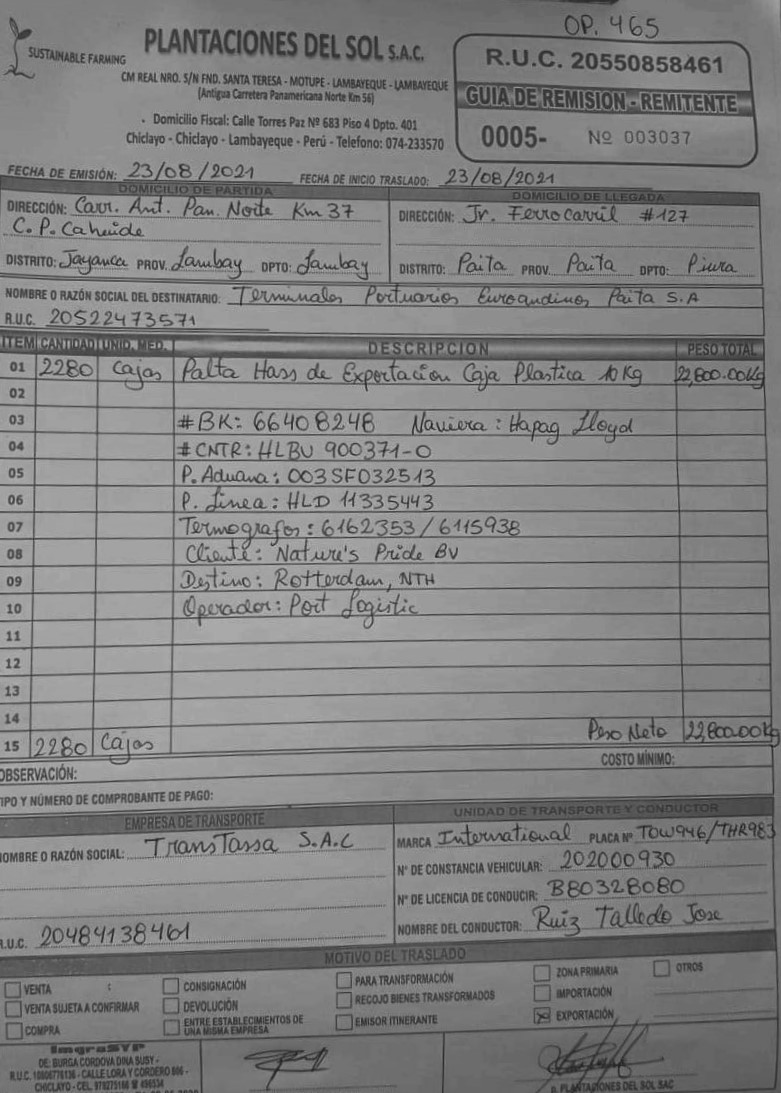 OP. 465
SUSTAINABLE FARMING
PLANTACIONES DEL SOL S.A.C.
CM REAL NRO. S/N FND. SANTA TERESA - MOTUPE - LAMBAYEQUE - LAMBAYEQUE
(Antigua Carretera Panamericana Norte Km 56)
Domicilio Fiscal: Calle Torres Paz Nº 683 Piso 4 Dpto. 401
Chiclayo - Chiclayo - Lambayeque - Perú - Telefono: 074-233570
R.U.C. 20550858461
GUIA DE REMISION - REMITENTE
0005- Nº 003037
FECHA DE EMISIÓN: 23/08/2021 FECHA DE INICIO TRASLADO: 23/08/2021
DOMICILIO DE PARTIDA
DIRECCIÓN: Carr. Ant. Pan. Norte Km 37
C. P. Cahuide
DISTRITO: Jayanca PROV. Lambay DPTO: Lambay
DOMICILIO DE LLEGADA
DIRECCIÓN: Jr. Ferrocarril #127
DISTRITO: Paita PROV. Paita DPTO: Piura
NOMBRE O RAZÓN SOCIAL DEL DESTINATARIO: Terminales Portuarios Euroandinos Paita S.A
R.U.C. 20522473571
ITEM CANTIDAD UNID. MED. DESCRIPCION PESO TOTAL
01 2280 Cajas Palta Hass de Exportación Caja Plastica 10 Kg 22,800.00Kg
02
03 #BK: 66408248 Naviera: Hapag Lloyd
04 #CNTR: HLBU 900371-0
05 P. Aduana: 003SF032513
06 P. Linea: HLD 11335443
07 Termografos: 6162353 / 6115938
08 Cliente: Nature's Pride BV
09 Destino: Rotterdam, NTH
10 Operador: Port Logistic
11
12
13
14
15 2280 Cajas Peso Neto 22,800.00Kg
OBSERVACIÓN: COSTO MÍNIMO:
TIPO Y NÚMERO DE COMPROBANTE DE PAGO:
EMPRESA DE TRANSPORTE
NOMBRE O RAZÓN SOCIAL: TransTassa S.A.C
R.U.C. 20484138461
UNIDAD DE TRANSPORTE Y CONDUCTOR
MARCA International PLACA Nº TOW946/THR983
Nº DE CONSTANCIA VEHICULAR: 202000930
Nº DE LICENCIA DE CONDUCIR: B80328080
NOMBRE DEL CONDUCTOR: Ruiz Talledo Jose
MOTIVO DEL TRASLADO
VENTA CONSIGNACIÓN PARA TRANSFORMACIÓN ZONA PRIMARIA OTROS
VENTA SUJETA A CONFIRMAR DEVOLUCIÓN RECOJO BIENES TRANSFORMADOS IMPORTACIÓN
COMPRA ENTRE ESTABLECIMIENTOS DE UNA MISMA EMPRESA EMISOR ITINERANTE EXPORTACIÓN
ImgraSYP
DE: BURGA CORDOVA DINA SUSY -
CALLE LORA Y CORDERO 806 -
p. PLANTACIONES DEL SOL SAC